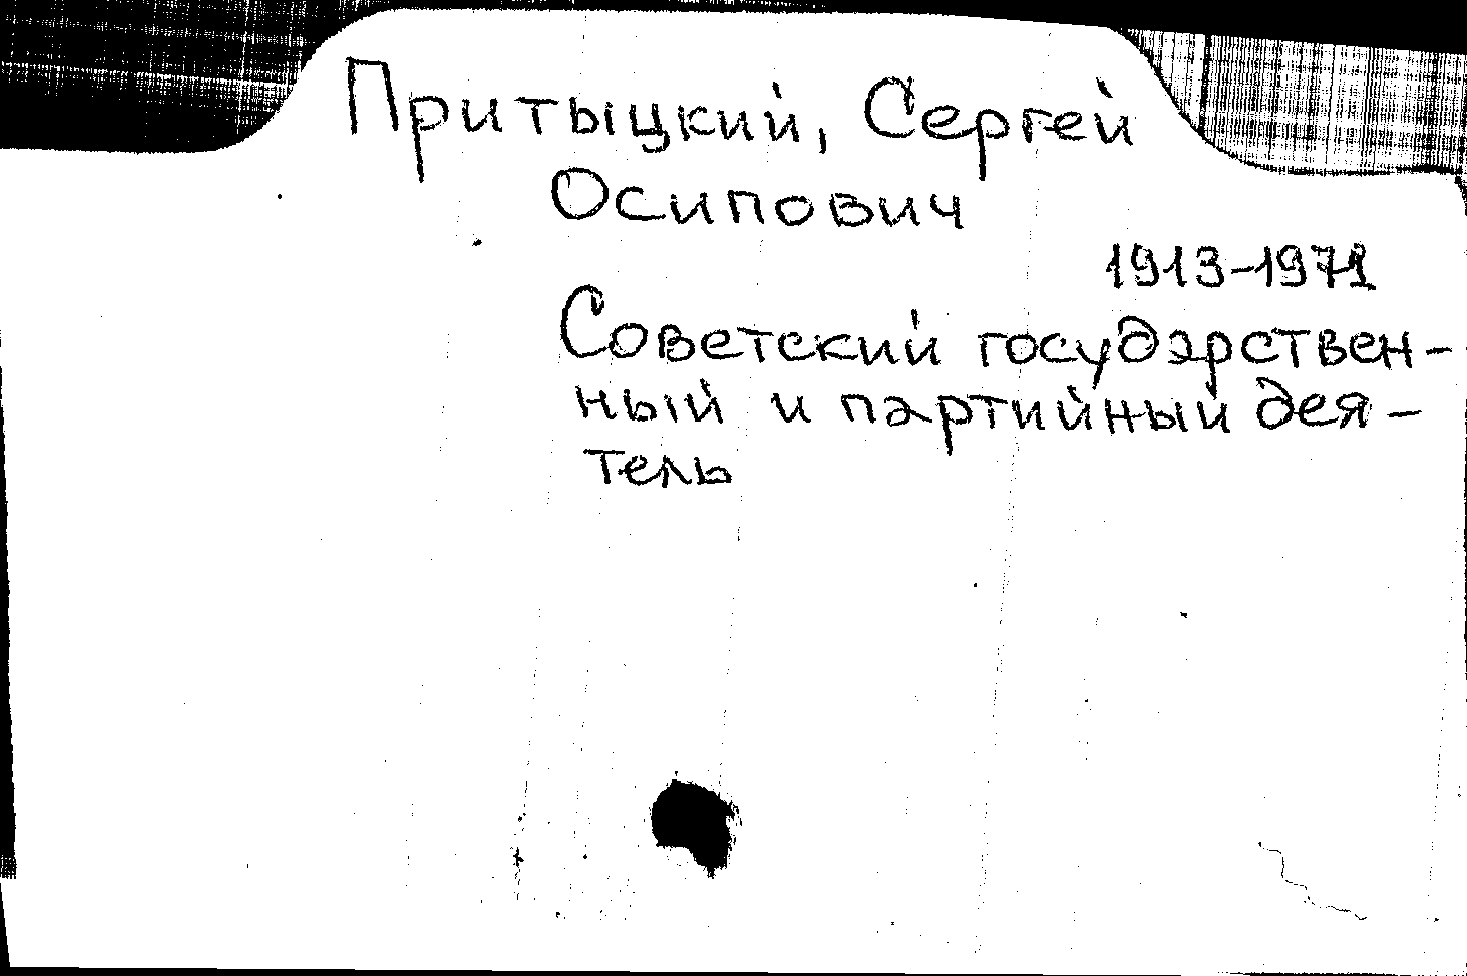 Притыцкий, Сергей
Осипович
1913-1971
Советский государствен-
ный и партийный дея-
тель